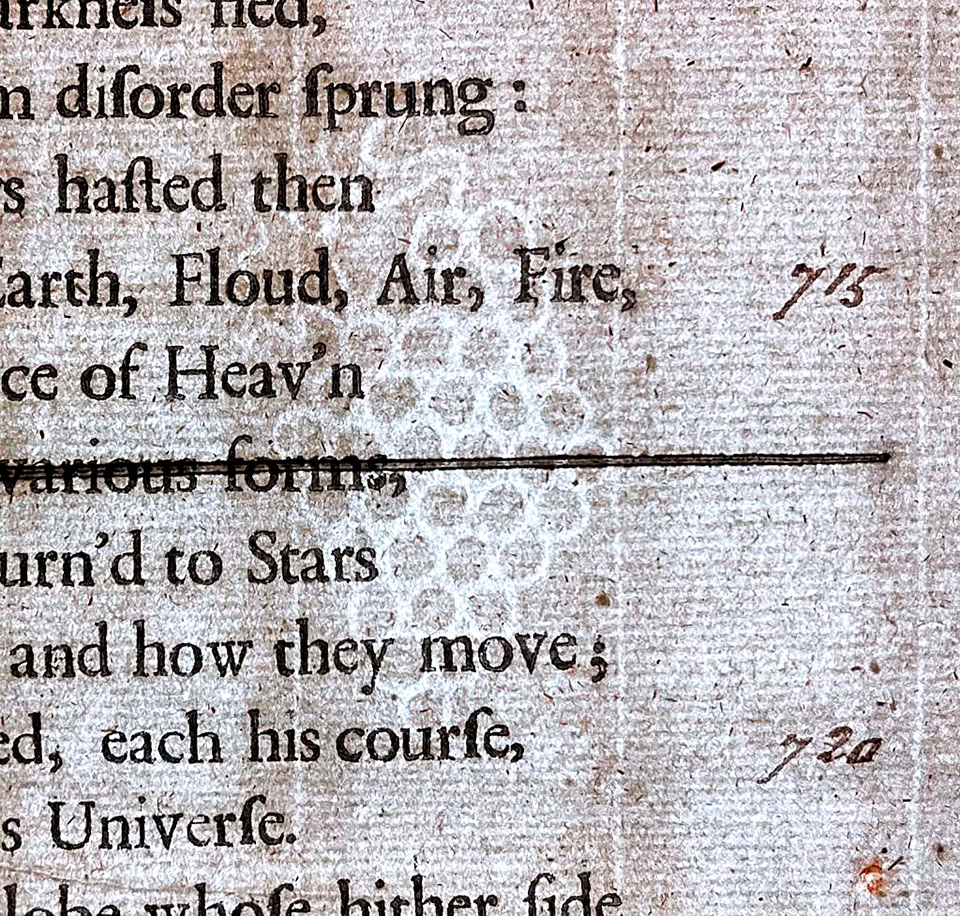 arkneſs fled,
m diſorder ſprung:
rs haſted then
Earth, Floud, Air, Fire, 715
ce of Heav'n
various forms,
urn'd to Stars
and how they move;
ed, each his courſe, 720
s Univerſe.
lobe whoſe hither ſide